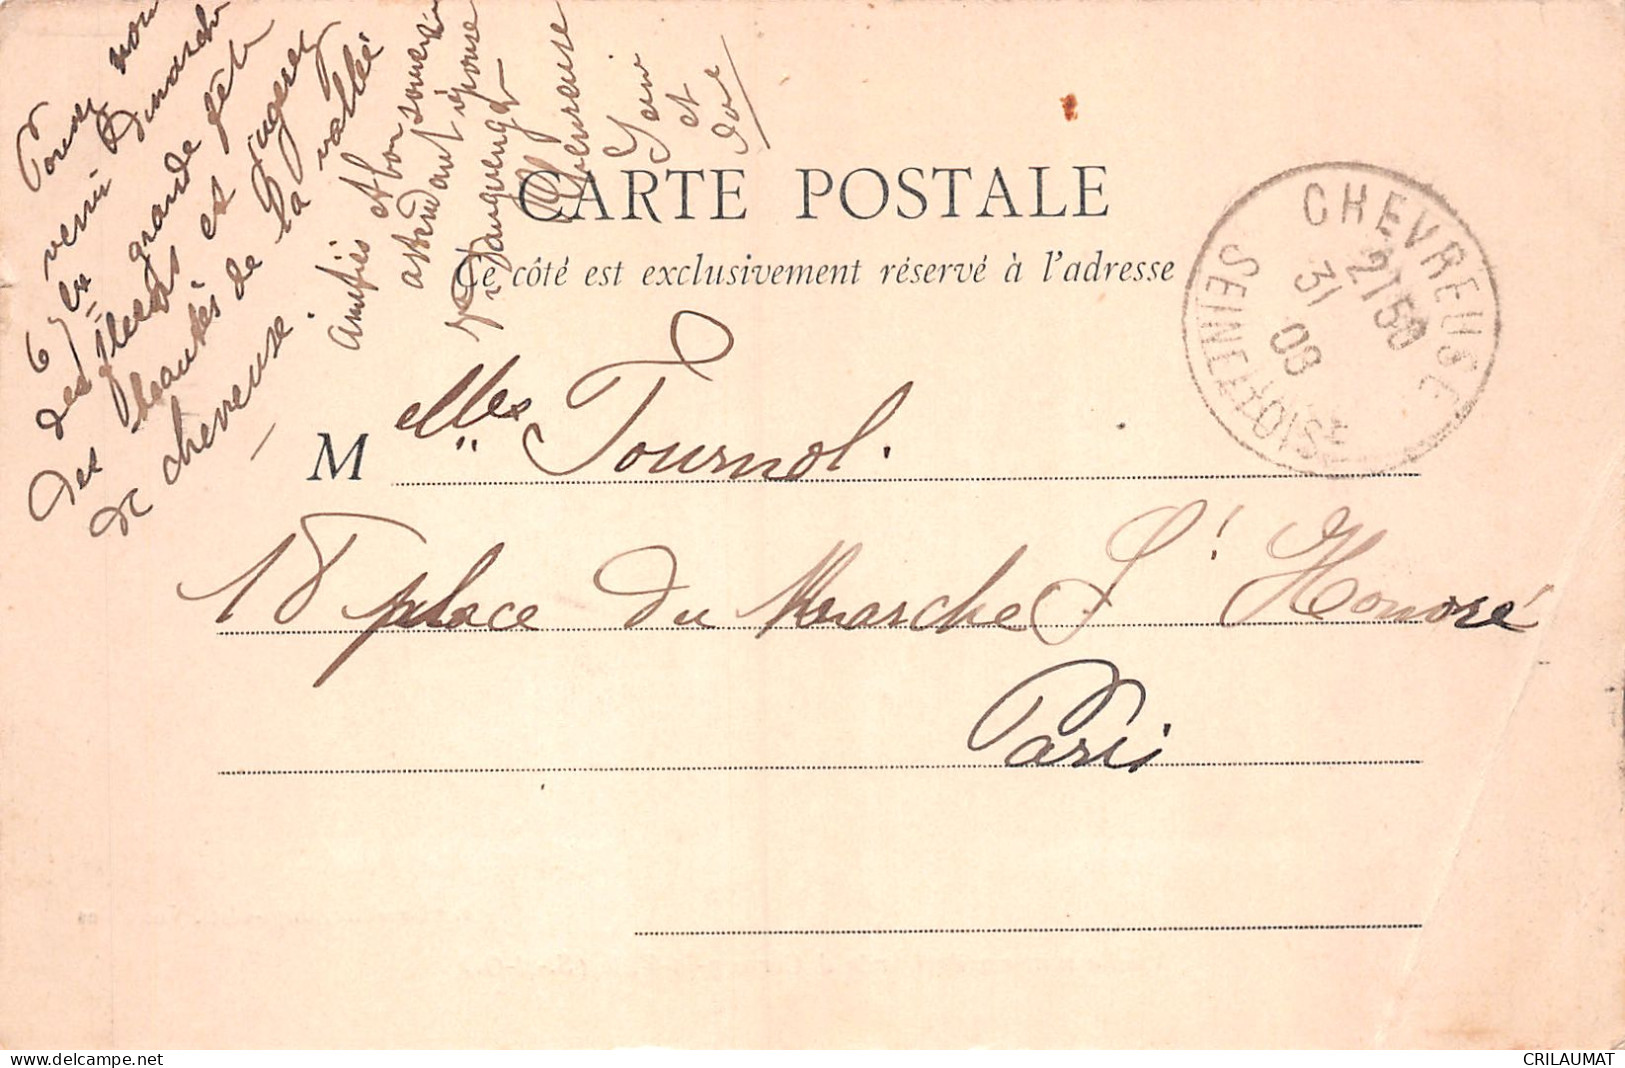 Pouvez vous
venir Dimanche
grande fête
des fleurs et juger
des beautés de la vallée
de chevreuse.
amitiés et bon souvenir
attendant réponse
Jean
et
CARTE POSTALE
Ce côté est exclusivement réservé à l'adresse
CHEVREUSE
21 50
31
08
SEINE-ET-OISE
M elles Tournol.
18 place du Marche St Honoré
Paris
delcampe.net
CRILAUMAT